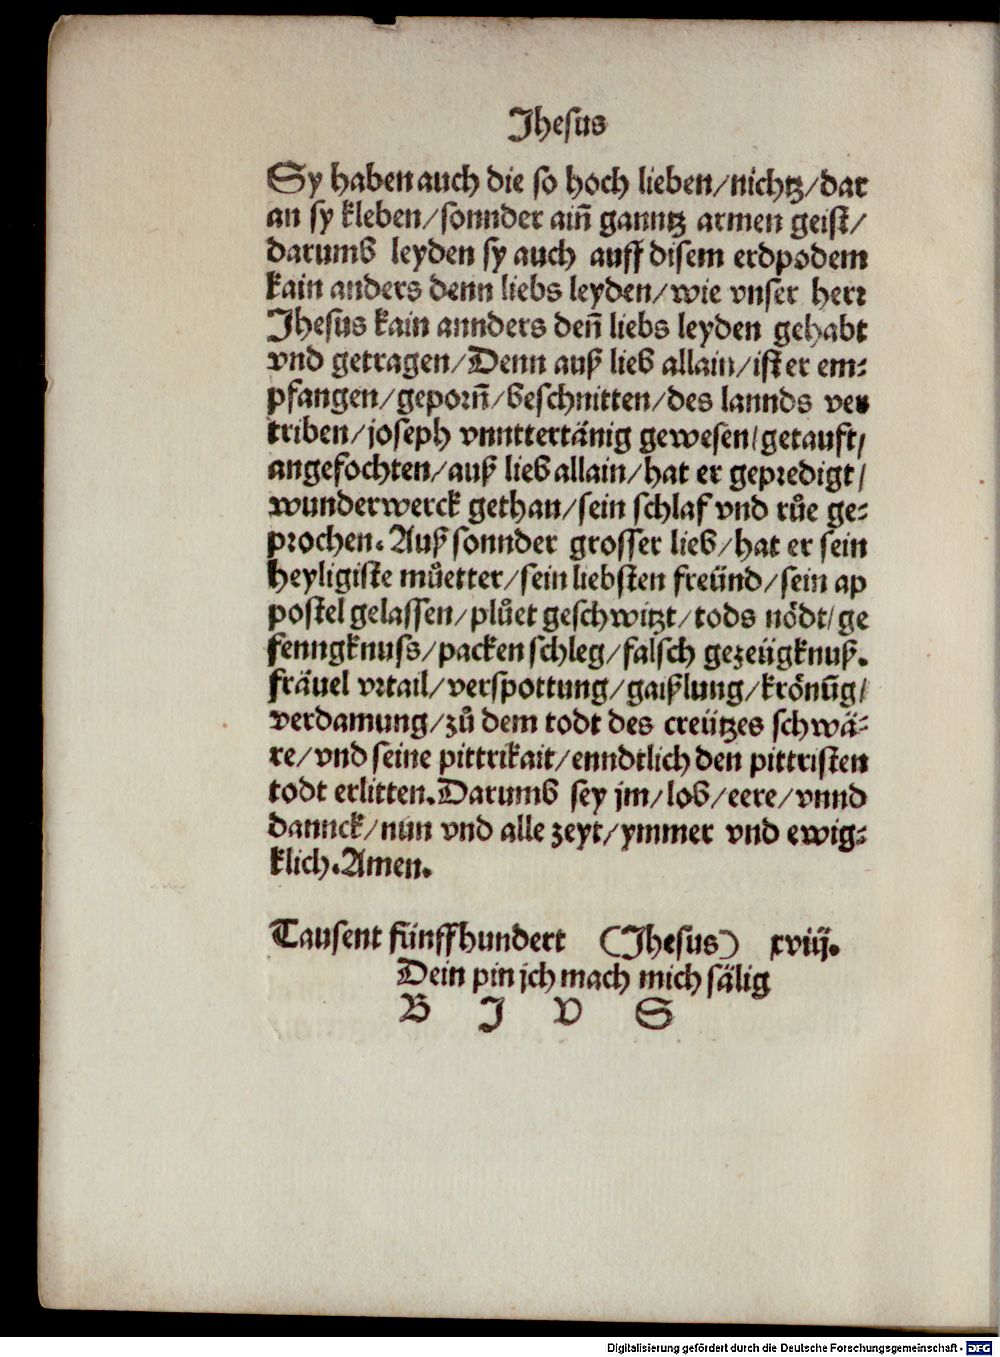 Jhesus
Sy haben auch die so hoch lieben/nichtz/dar
an sy kleben/sonnder ain̄ ganntz armen geist/
darumb leyden sy auch auff disem erdpodem
kain anders denn liebs leyden/wie vnser herr
Jhesus kain annders den̄ liebs leyden gehabt
vnd getragen/Denn auß lieb allain/ist er em⸗
pfangen/geporn̄/beschnitten/des lannds ver
triben/joseph vnnttertänig gewesen/getauft/
angefochten/auß lieb allain/hat er gepredigt/
wunderwerck gethan/sein schlaf vnd růe ge⸗
prochen. Auß sonnder grosser lieb/hat er sein
heyligiste můetter/sein liebsten freünd/sein ap
postel gelassen/plůet geschwitzt/tods nödt/ge
fenngknuss/packen schleg/falsch gezeügknuß.
fräuel vrtail/verspottung/gaißlung/krönūg/
verdamung/zů dem todt des creützes schwä⸗
re/vnd seine pittrikait/enndtlich den pittristen
todt erlitten. Darumb sey jm/lob/eere/vnnd
dannck/nun vnd alle zeyt/ymmer vnd ewig⸗
klich. Amen.
Tausent fünffhundert (Jhesus) xviij.
Dein pin jch mach mich sälig
B J V S
Digitalisierung gefördert durch die Deutsche Forschungsgemeinschaft - DFG